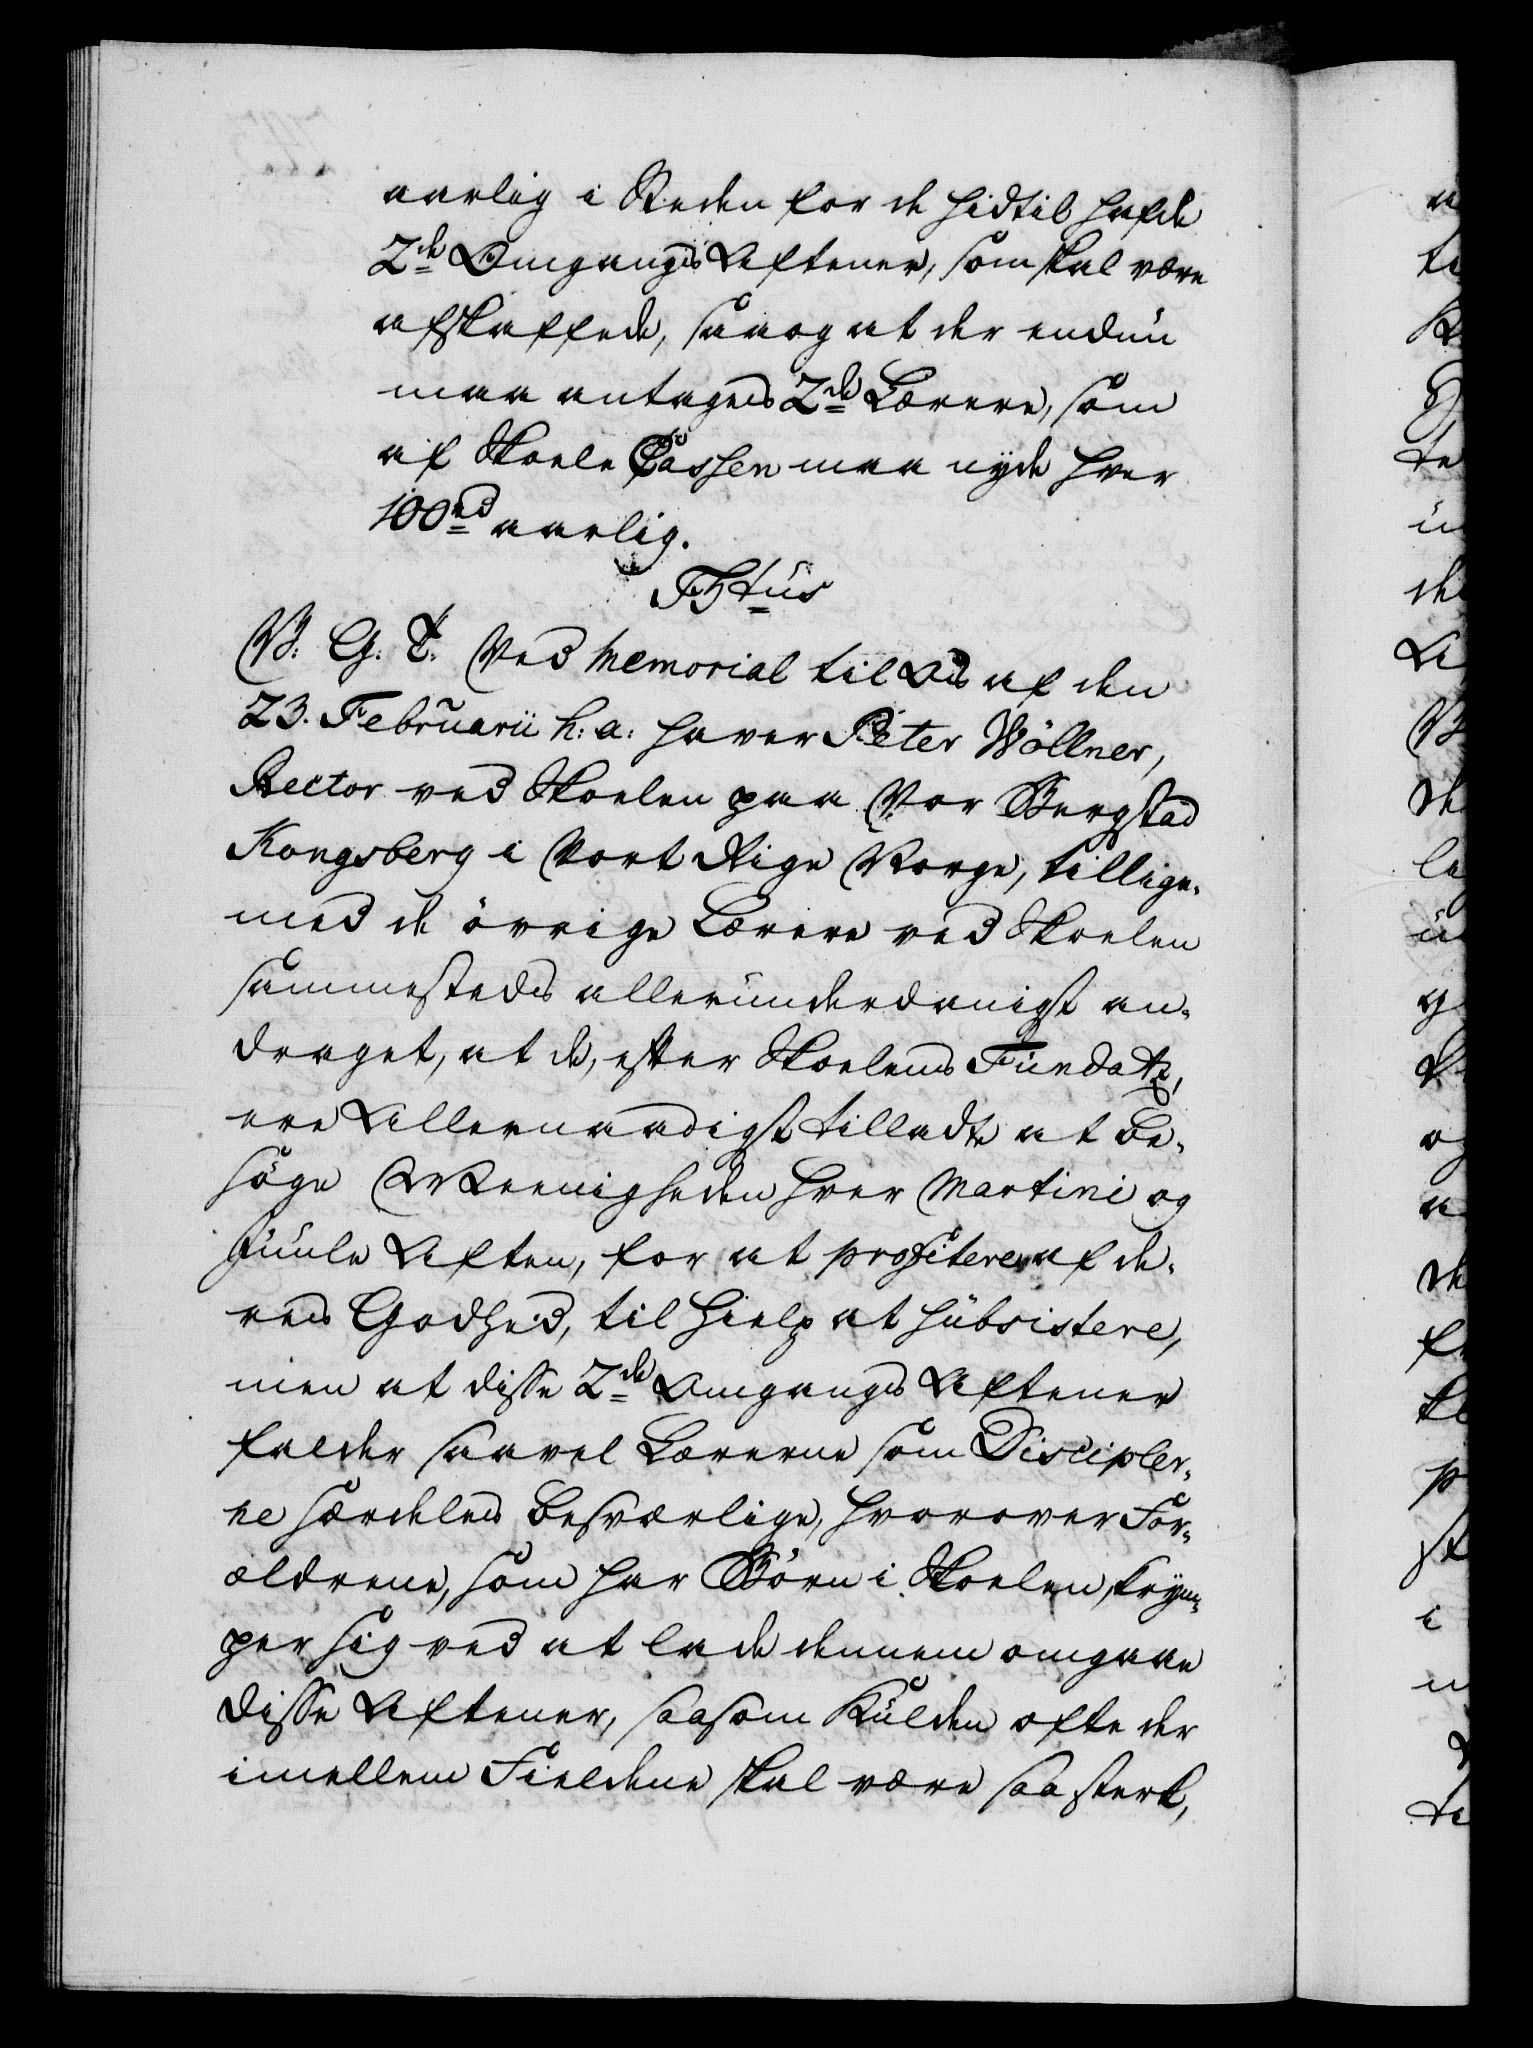 aarlig i Steden for de hidtil hafde
2de Omgangs Aftener, som skal være
afskaffede, saa og at der endnu
maa antages 2de Lærere, som
af Skole Cassen maa nyde hver
100 rd aarlig.
F5tus
V: G: T: Ved Memorial til Os af den
23. Februarii h: a: haver Peter Wöllner,
Rector ved Skoelen paa Vor Bergstad
Kongsberg i Vort Rige Norge, tillige-
med de övrige Lærere ved Skoelen
sammesteds allerunderdanigst an-
draget, at de, efter Skoelens Fundatz,
ere Allernaadigst tilladte at be-
söge Meenigheden hver Martini og
Juule Aften, for at profitere af de-
res Godhed, til Hielp at subsistere,
men at disse 2de Omgangs Aftener
falder saavel Lærerne som Discipler-
ne særdeles besværlige, hvorover For-
ældrene, som har Börn i Skoelen, krym-
per sig ved at lade dennem omgaae
disse Aftener, saasom Kulden ofte der
imellem Fieldene skal være saa sterk,